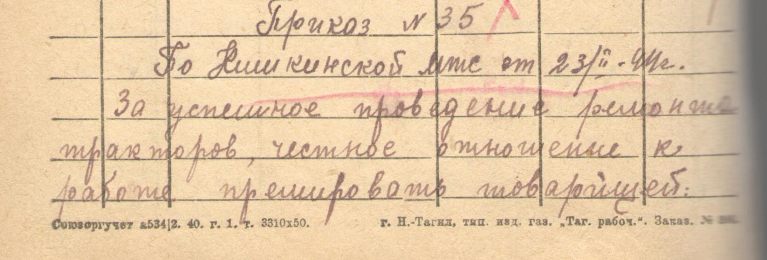 Приказ № 35
По Нишкинской мтс от 23/II-44г.
За успешное проведение ремонта
тракторов, честное отношение к
работе премировать товарищей:
Союзоргучет а534|2. 40. г. 1. т. 3310х50. г. Н.-Тагил, тип. изд. газ. „Таг. рабоч.“. Заказ. №